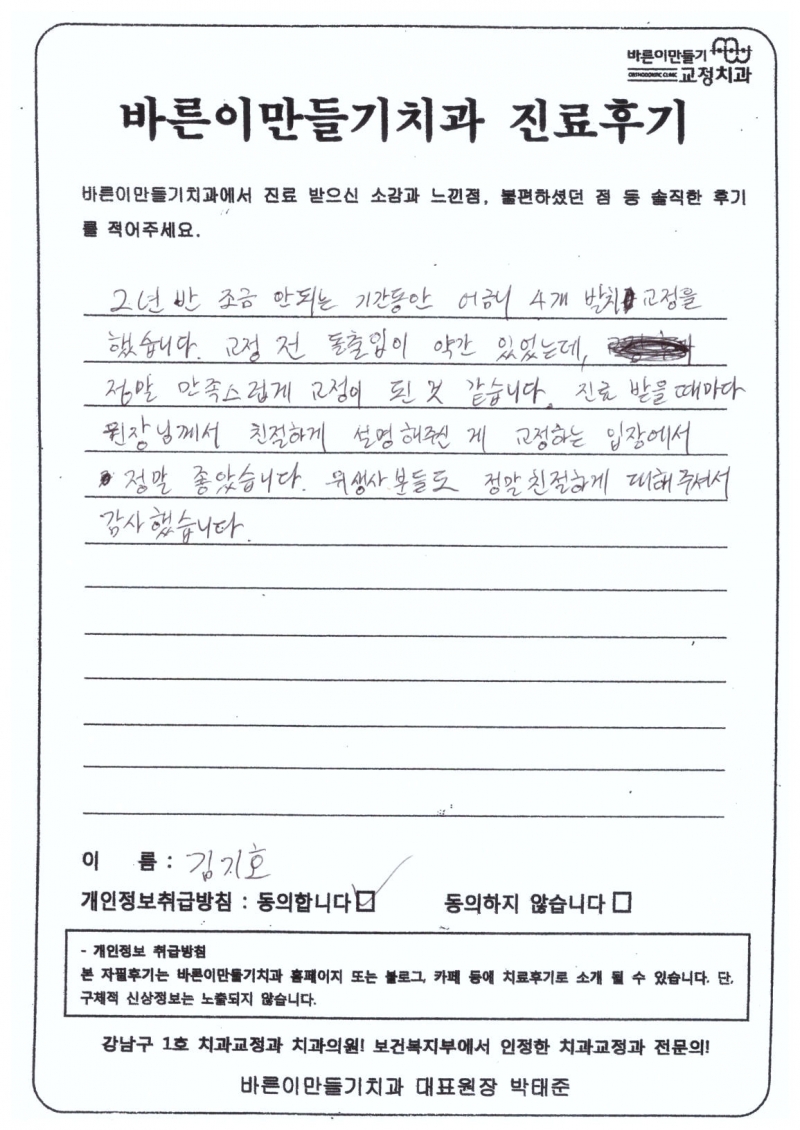 바른이만들기
ORTHODONTIC CLINIC 교정치과
바른이만들기치과 진료후기
바른이만들기치과에서 진료 받으신 소감과 느낀점, 불편하셨던 점 등 솔직한 후기
를 적어주세요.
2년 반 조금 안되는 기간동안 어금니 4개 발치 교정을
했습니다. 교정 전 돌출입이 약간 있었는데,
정말 만족스럽게 교정이 된 것 같습니다. 진료 받을 때마다
원장님께서 친절하게 설명해주신 게 교정하는 입장에서
정말 좋았습니다. 위생사분들도 정말 친절하게 대해주셔서
감사했습니다.
이 름 : 김기호
개인정보취급방침 : 동의합니다 동의하지 않습니다
- 개인정보 취급방침
본 자필후기는 바른이만들기치과 홈페이지 또는 블로그, 카페 등에 치료후기로 소개 될 수 있습니다. 단,
구체적 신상정보는 노출되지 않습니다.
강남구 1호 치과교정과 치과의원! 보건복지부에서 인정한 치과교정과 전문의!
바른이만들기치과 대표원장 박태준